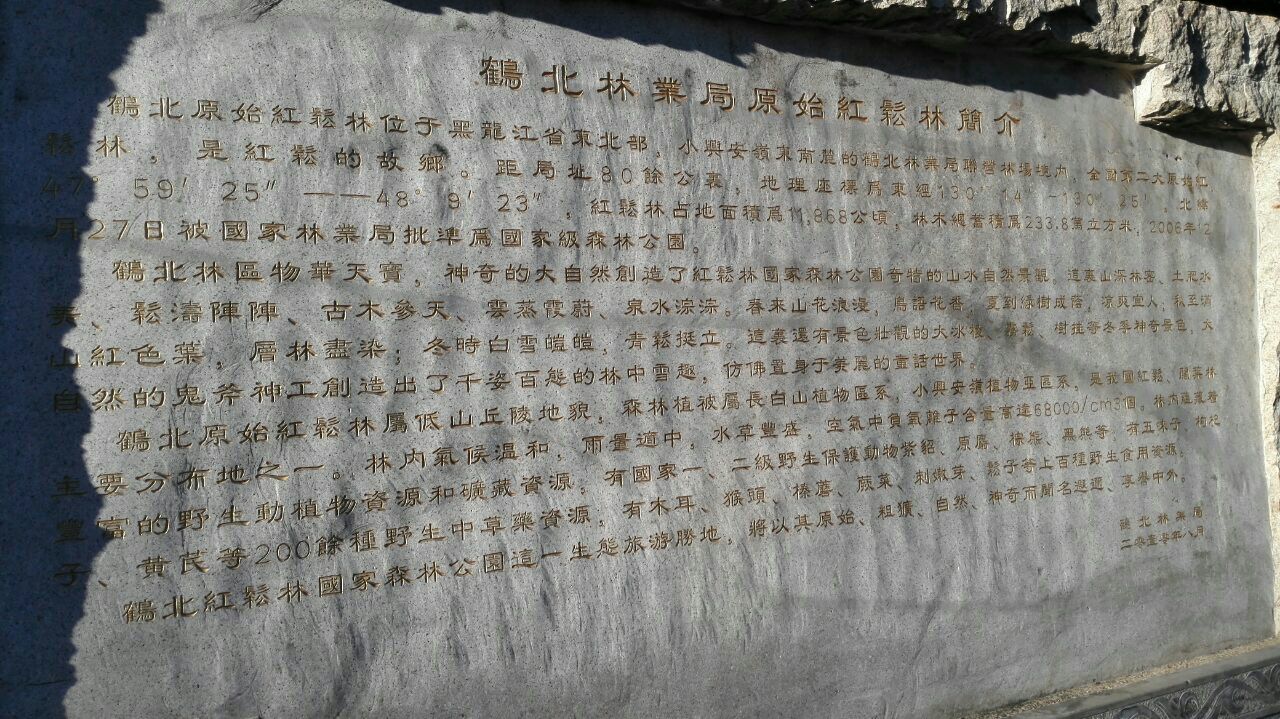 鶴北林業局原始紅鬆林簡介
鶴北原始紅鬆林位于黑龍江省東北部，小興安嶺東南麓的鶴北林業局聯營林場境内，全國第二大原始紅
鬆林，是紅鬆的故鄉。距局址80餘公裏，地理座標爲東經130°14′—130°25′，北緯
47°59′25″——48°9′23″，紅鬆林占地面積爲11,868公頃，林木總蓄積爲233.8萬立方米，2006年12
月27日被國家林業局批準爲國家級森林公園。
鶴北林區物華天寶，神奇的大自然創造了紅鬆林國家森林公園奇特的山水自然景觀，這裏山深林密、土肥水
美、鬆濤陣陣、古木參天、雲蒸霞蔚、泉水淙淙。春來山花浪漫，鳥語花香，夏到緑樹成蔭，凉爽宜人，秋至滿
山紅色葉，層林盡染；冬時白雪皚皚，青鬆挺立。這裏還有景色壯觀的大冰棱、霧鬆、樹挂等冬季神奇景色，大
自然的鬼斧神工創造出了千姿百態的林中雪趣，仿佛置身于美麗的童話世界。
鶴北原始紅鬆林屬低山丘陵地貌，森林植被屬長白山植物區系，小興安嶺植物亞區系，是我國紅鬆、闊葉林
主要分布地之一。林内氣候温和，雨量適中，水草豐盛，空氣中負氧離子含量高達68000/cm3個。林内蘊藏着
豐富的野生動植物資源和礦藏資源，有國家一、二級野生保護動物紫貂、原麝、棕熊、黑熊等，有五味子、枸杞
子、黄芪等200餘種野生中草藥資源，有木耳、猴頭、榛蘑、蕨菜、刺嫩芽、鬆子等上百種野生食用資源。
鶴北紅鬆林國家森林公園這一生態旅游勝地，將以其原始、粗獷、自然、神奇而聞名遐邇、享譽中外。
鶴北林業局
二零壹零年八月